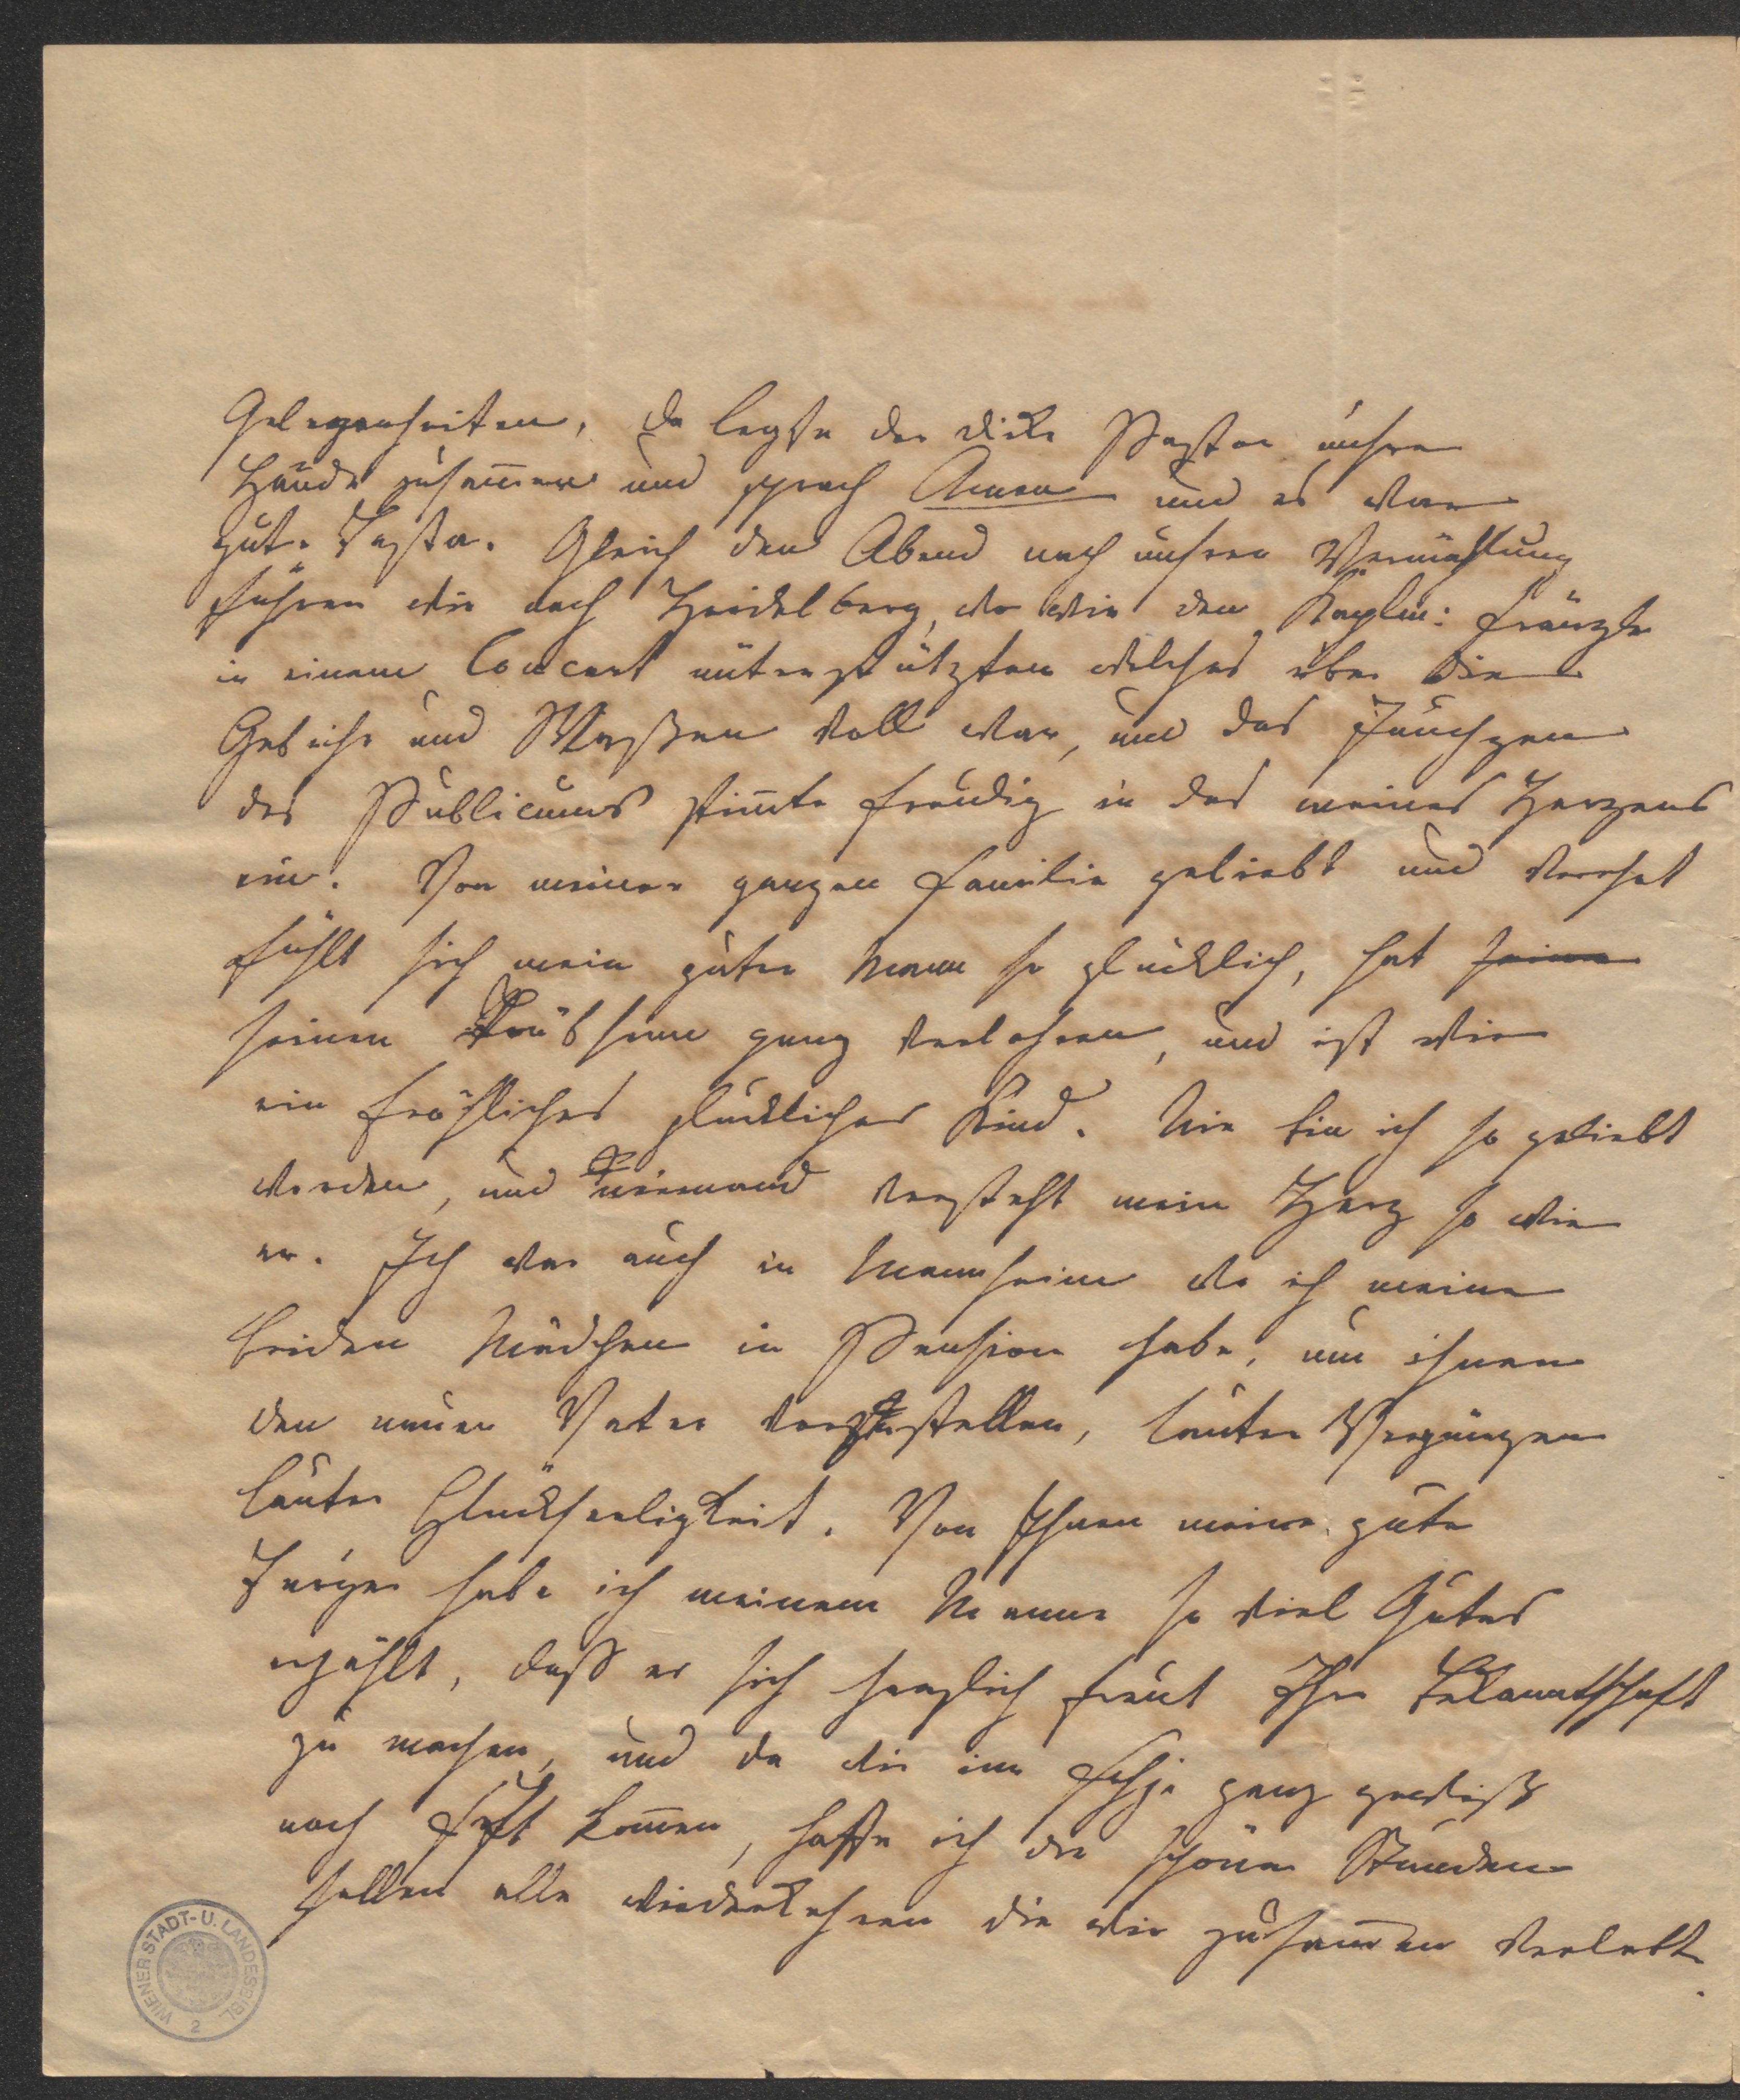 Gelegenheiten, da legte der dicke Pastor unsre
Hände zusam̅en und sprach Amen und es war
gut. Basta. Gleich den Abend nach unsrer Vermählung
fuhren wir nach Heidelberg, wo wir den Kaplm: Fränzl
in einem Concert unterstützten welches über die
Gebühr und Maßen voll war, und das Jauchzen
des Publicums stim̅te freudig in das meines Herzens
ein. Von meiner ganzen Familie geliebt und verehrt
fühlt sich mein guter Mann so glücklich, hat seine
seinen Trübsinn ganz verlohren, und ist wie
ein fröhliches glückliches Kind. Nie bin ich so geliebt
worden, und niemand versteht mein Herz so wie
er. Ich war auch in Mannheim wo ich meine
beiden Mädchen in Pension habe, um ihnen
den neuen Vater vorzustellen, lauter Vergnügen
lauter Glückseeligkeit. Von Ihnen meine gute
habe ich meinem Manne so viel Gutes
erzählt, daß er sich herzlich freut Ihre Bekanntschaft
zu machen, und da wir im ganz gewiß
nach kom̅en, hoffe ich die schönen Stunden
sollen alle wiederkehren die wir zusam̅en verlebt
WIENER STADT- U. LANDESBIBL.
2